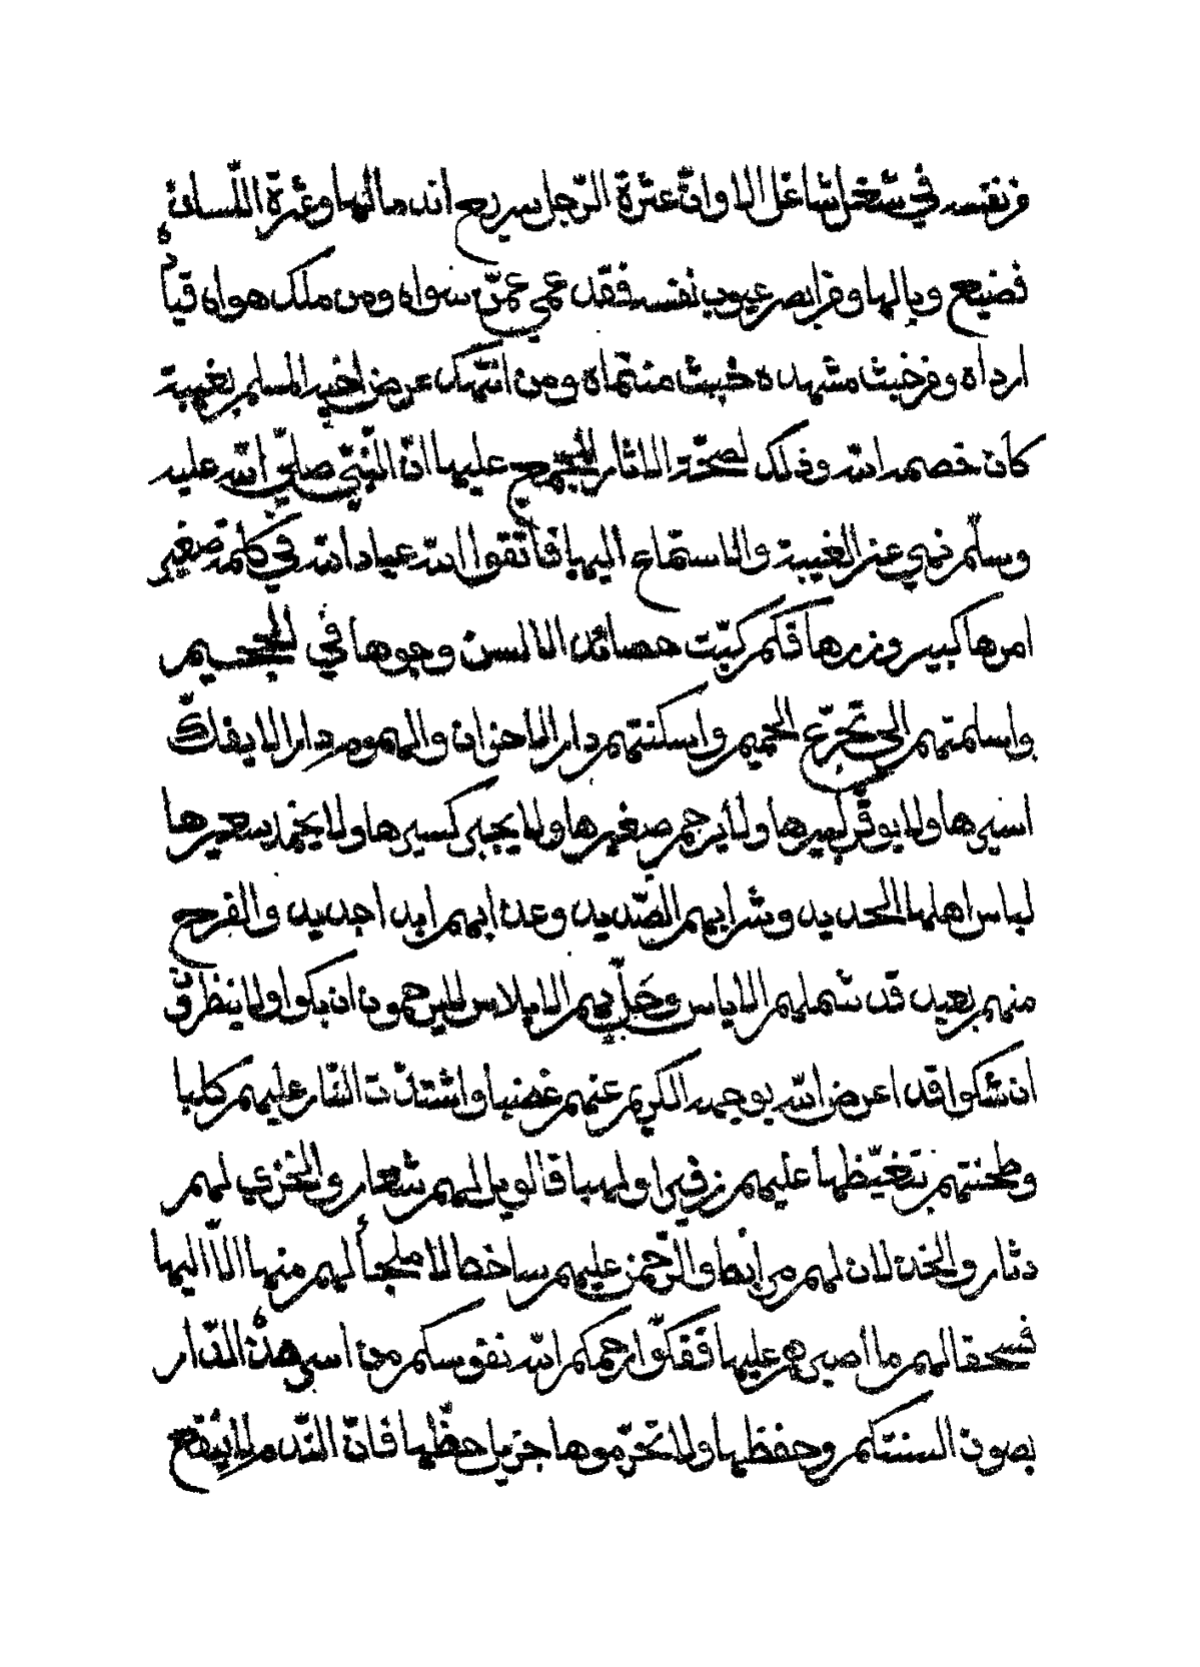 من نفسه في شغل شاغل الا وان عثرة الرّجل سريع اندمالها وعثرة اللّسان
فضيع وبالها ومن ابصر عيوب نفسه فقد عمي عمّن سواه ومن ملك هواه قياده
ارداه ومن خبث مشهده خبث منتماه ومن انتهك عرض اخيه المسلم بغيبة
كان خصمه الله وذلك لصحّة الاثار المجمع عليها انّ النّبيّ صلّي الله عليه
وسلّم نهي عن الغيبة والاستماع اليها فاتّقوا الله عباد الله في كلمة صغير
امرها كبير وزرها فكم كبّت حصائد الالسن وجوها في الجحيم
واسلمتهم الي تجرّع الحميم واسكنتهم دار الاحزان والهموم دار لا يفكّ
اسيرها ولا يوقّر كبيرها ولا يرحم صغيرها ولا يجبر كسيرها ولا يخمد سعيرها
لباس اهلها الحديد وشرابهم الصّديد وعذابهم ابدا جديد والفرح
منهم بعيد قد شملهم الاياس وحلّ بهم الابلاس لا يرحمون ان بكوا ولا ينظرون
ان شكوا قد اعرض الله بوجهه الكريم عنهم غضبا واشتدّت النّار عليهم كلبا
وطحنتهم بتغيّظها عليهم زفيرا ولهبا فالويل لهم شعار والخزي لهم
دثار والخذلان لهم مرابط والرّحمن عليهم ساخط لا ملجأ لهم منها الاّ اليها
فسحقا لهم ما اصبرهم عليها ففكّوا رحمكم الله نفوسكم من اسر هذه الدّار
بصون السنتكم وحفظها ولا تحرّموها جزيل حظّها فانّ النّدم لا ينفع